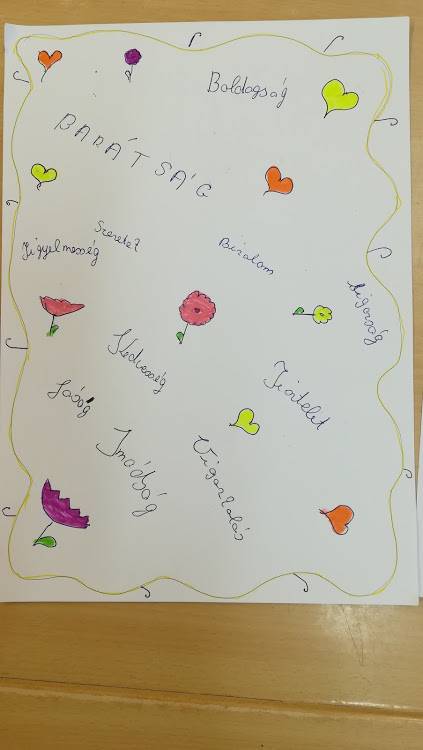 Boldogság
BARÁTSÁG
Szeretet
Figyelmesség
Bizalom
Szigorúság
Kedvesség
Tisztelet
Jóság
Imádság
Vigasztalás